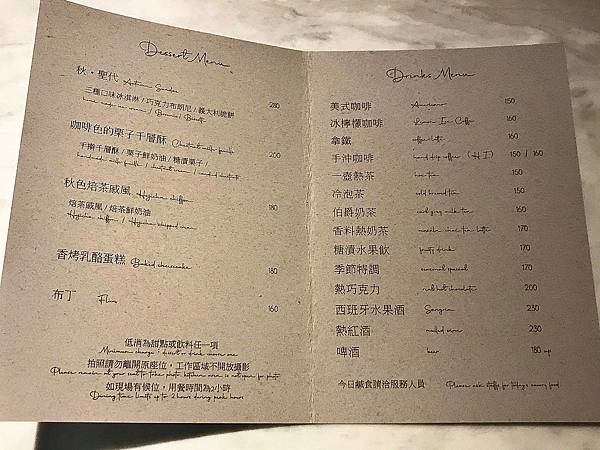 Dessert Menu
秋・聖代 Autumn Sundae
三種口味冰淇淋 / 巧克力布朗尼 / 義大利脆餅 280
咖啡色的栗子千層酥 Chestnut mille feuille
手擀千層酥 / 栗子鮮奶油 / 糖漬栗子 / 200
秋色焙茶戚風 Hojicha chiffon
焙茶戚風 / 焙茶鮮奶油 180
Hojicha chiffon / Hojicha whipped cream
香烤乳酪蛋糕 Baked cheesecake 180
布丁 Flan 160
低消為甜點或飲料任一項
Minimum charge : dessert or drink choose one
拍照請勿離開原座位，工作區域不開放攝影
Please remain at your seat to take photo, kitchen area is not open for photo
如現場有候位，用餐時間為2小時
Dining time limits up to 2 hours during peak hours
Drinks Menu
美式咖啡 Americano 150
冰檸檬咖啡 Lemon Ice Coffee 160
拿鐵 caffe latte 160
手沖咖啡 hand drip coffee (H/I) 150 / 160
一壺熱茶 hot tea 150
冷泡茶 cold brewed tea 150
伯爵奶茶 earl grey milk tea 160
香料熱奶茶 masala chai tea latte 170
糖漬水果飲 fruity drink 170
季節特調 seasonal special 170
熱巧克力 real hot chocolate 200
西班牙水果酒 Sangria 230
熱紅酒 mulled wine 230
啤酒 beer 180 up
今日鹹食請洽服務人員 Please ask staffs for today's savory food